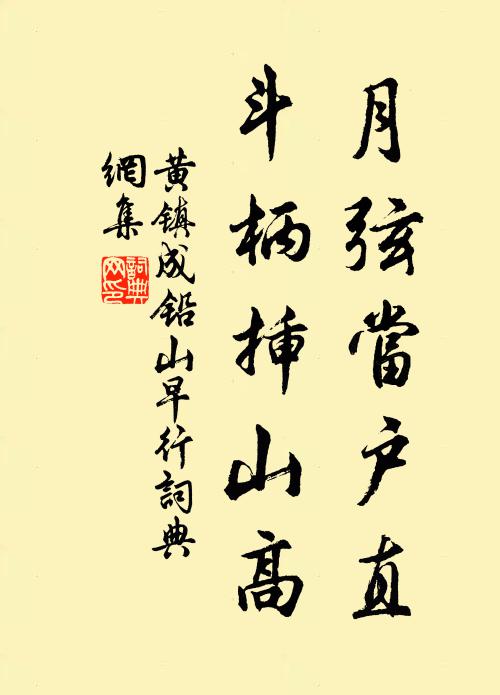 月弦當户直
斗柄揷山高
黄镇成铅山早行詞典
網集
詞典
网印